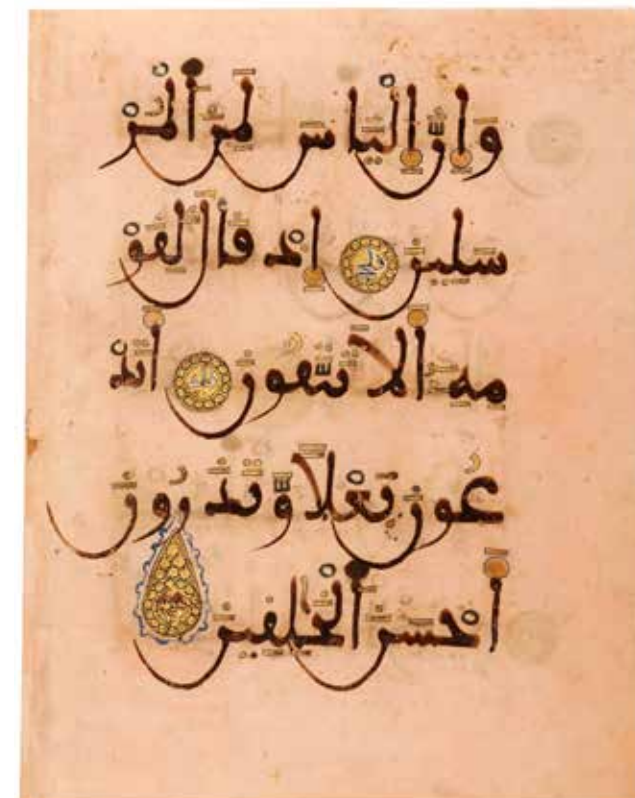 وَإِنَّ إِلْيَاسَ لَمِنَ ٱلْمُرْ
سَلِينَ إِذْ قَالَ لِقَوْ
مِهِ أَلَا تَتَّقُونَ أَتَدْ
عُونَ بَعْلًا وَتَذَرُونَ
أَحْسَنَ ٱلْخَٰلِقِينَ